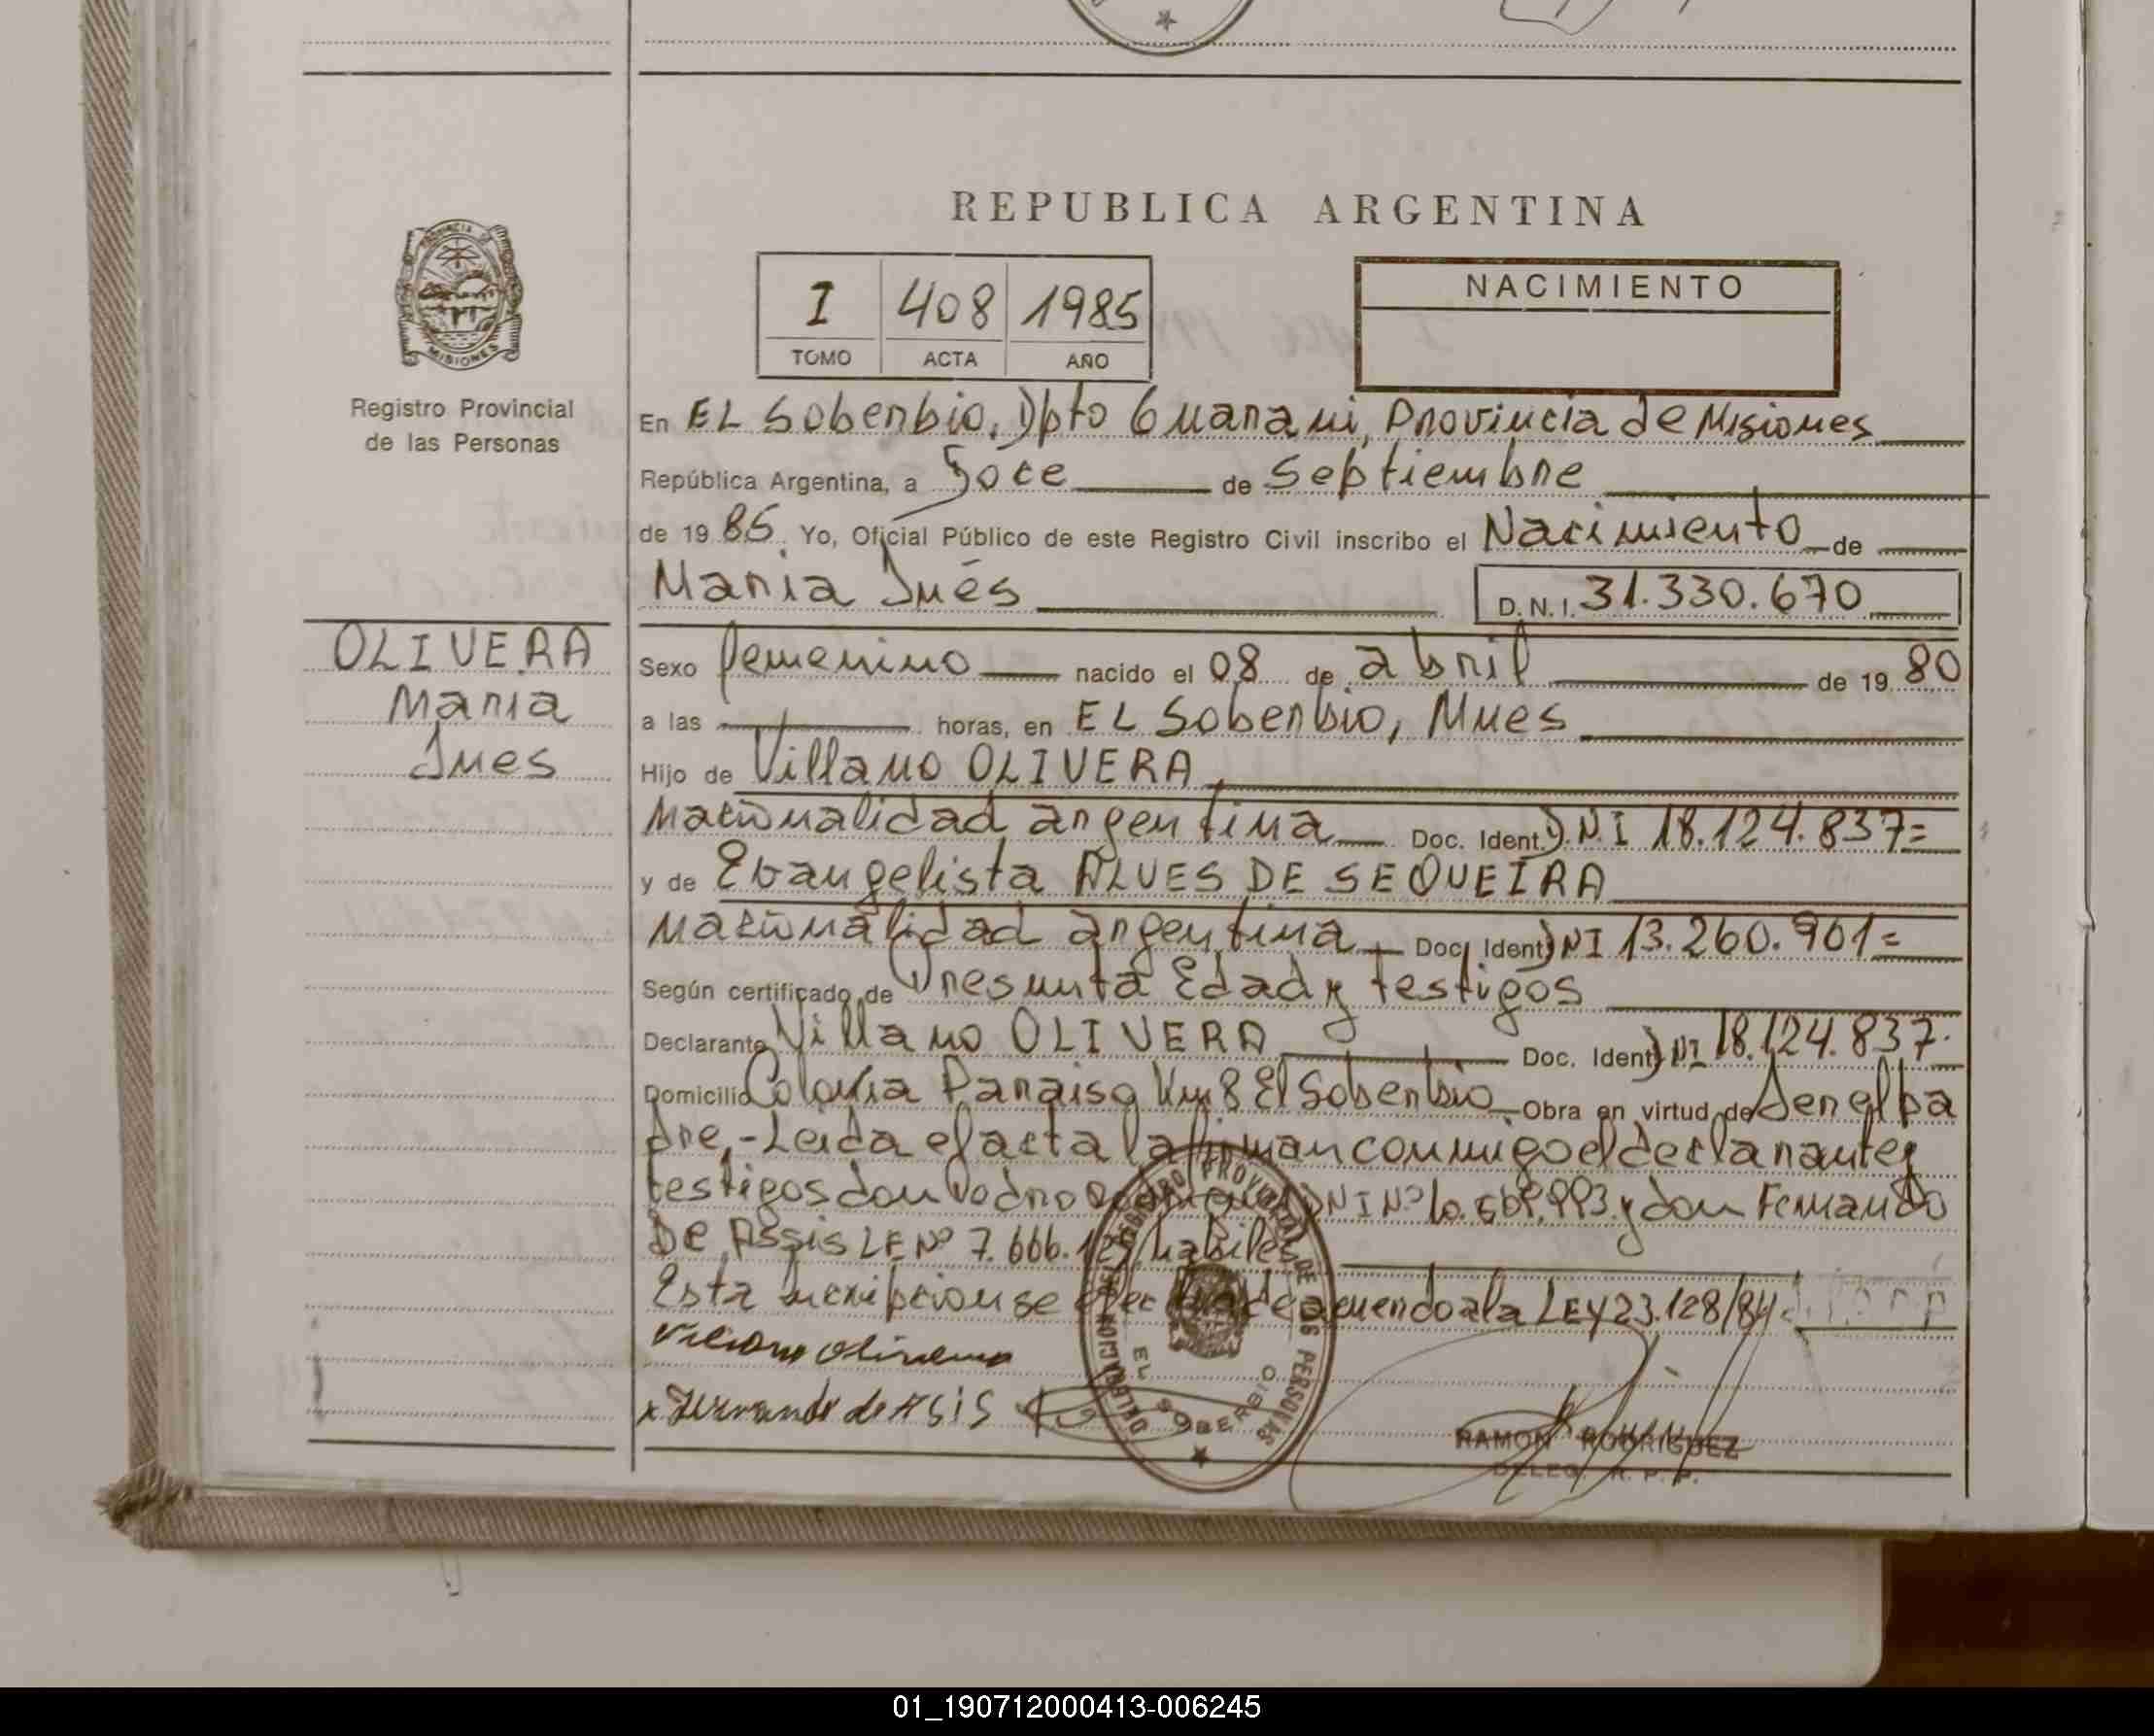 REPUBLICA ARGENTINA
I 408 1985
TOMO ACTA AÑO
NACIMIENTO
PROVINCIA DE MISIONES
Registro Provincial
de las Personas
En EL Soberbio, Dpto Guarani, Provincia de Misiones
República Argentina, a Doce de Septiembre
de 1985. Yo, Oficial Público de este Registro Civil inscribo el Nacimiento de
Maria Inés D.N.I. 31.330.670
OLIVERA
Maria
Ines
Sexo femenino nacido el 08 de abril de 1980
a las horas, en EL Soberbio, Mnes
Hijo de Villano OLIVERA,
nacionalidad argentina Doc. Ident. D.N.I 18.124.837=
y de Evangelista ALVES DE SEQUEIRA
nacionalidad argentina Doc. Ident. DNI 13.260.961=
Según certificado de Presunta Edad y testigos
Declarante Villano OLIVERA Doc. Ident. DNI 18.124.837.
Domicilio Colonia Paraiso Km 8 El Soberbio Obra en virtud de Ser el pa
dre,- Leida el acta la firman conmigo el declarante y
testigos don Pedro DNI Nº 10.569.993 y don Fernando
De Assis LE Nº 7.666. habiles
Esta inscripcion se efectua de acuerdo a la LEY 23.128/84
Villano Olivera
x Fernando de ASIS
REGISTRO PROVINCIAL DE LAS PERSONAS
DELEGACION
EL SOBERBIO
RAMON RODRIGUEZ
DELEG. R. P. P.
01_190712000413-006245